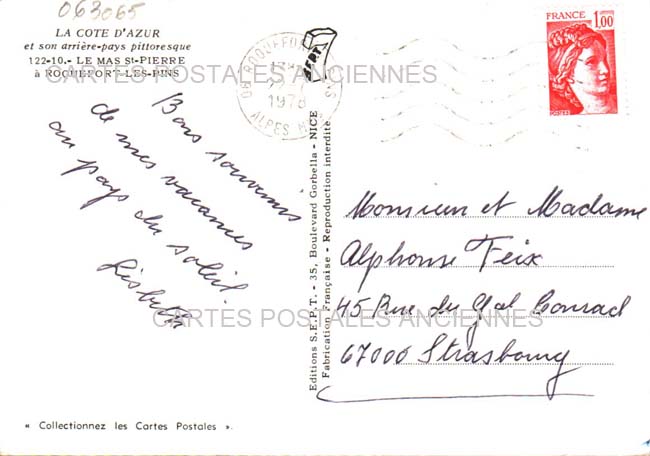 063065
LA COTE D'AZUR
et son arrière-pays pittoresque
122-10.- LE MAS St-PIERRE
à ROCHEFORT-LES-PINS
CARTES POSTALES ANCIENNES
Bons souvenirs
de mes vacances
au pays du soleil.
Lisbeth
« Collectionnez les Cartes Postales ».
Editions S.E.P.T. - 35, Boulevard Gorbella - NICE
Fabrication Française - Reproduction interdite
SEPT
06 ROQUEFORT
1978
ALPES
FRANCE
1,00
Monsieur et Madame
Alphonse Feix
45 Rue du Gal Conrad
67000 Strasbourg
CARTES POSTALES ANCIENNES